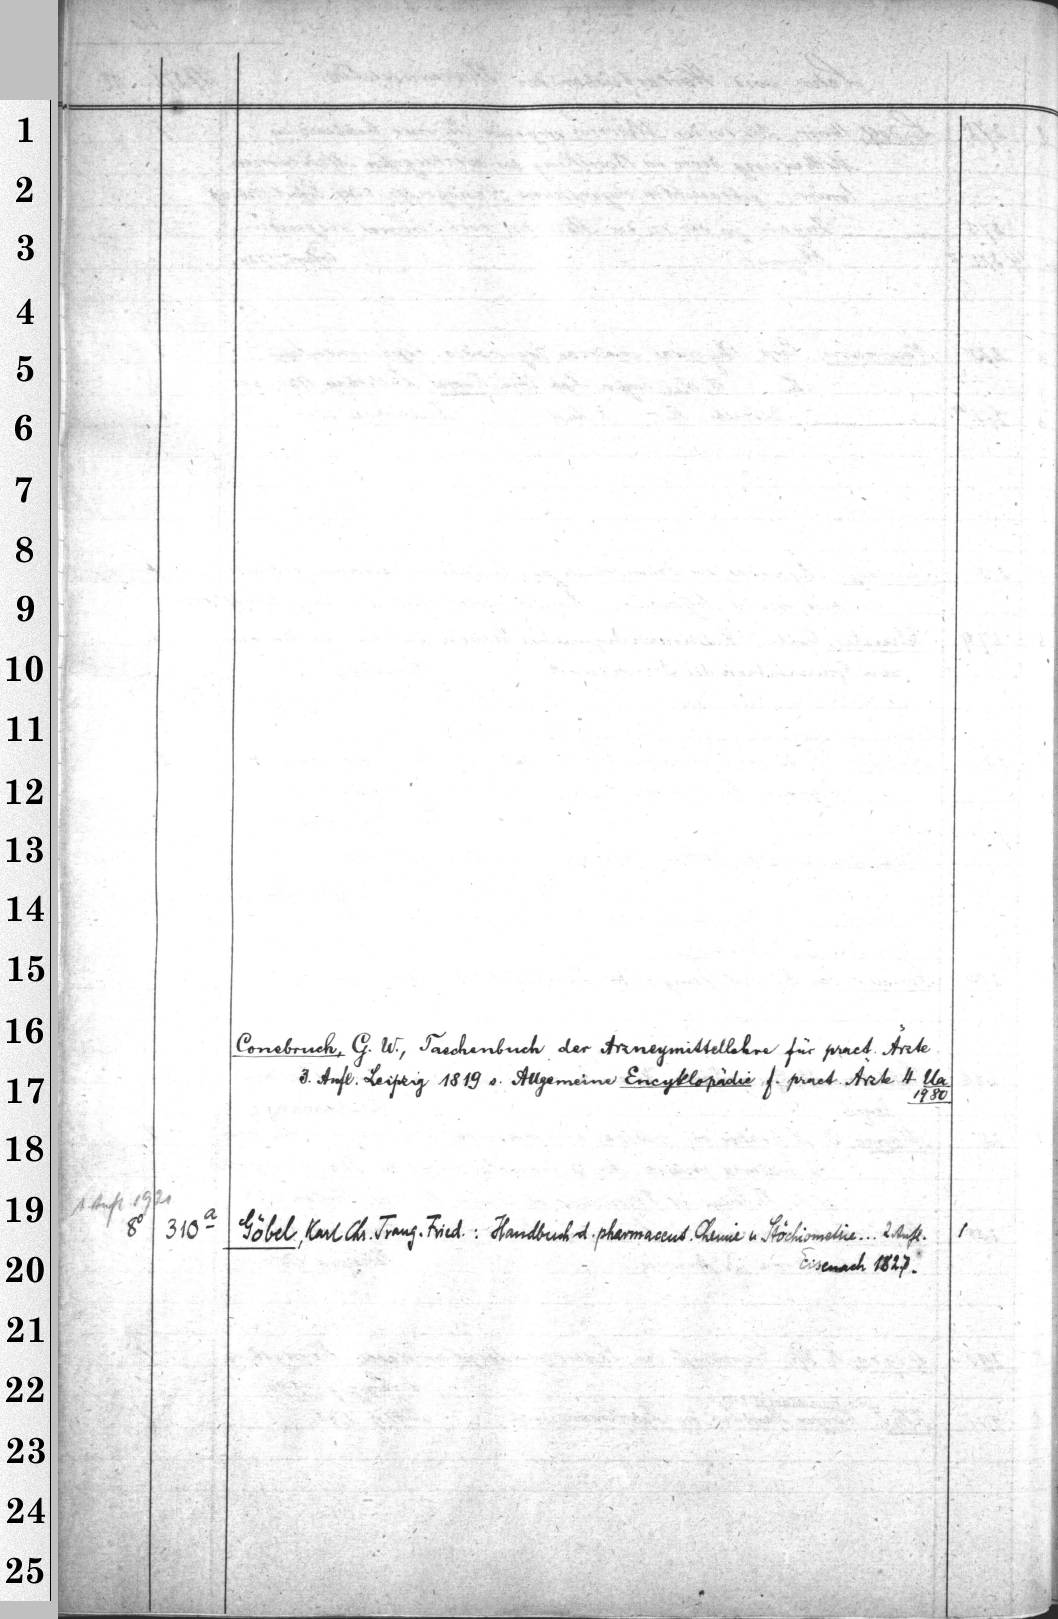 1
2
3
4
5
6
7
8
9
10
11
12
13
14
15
16
Conebruch, G. W., Taschenbuch der Arzneymittellehre für pract. Ärzte
3. Aufl. Leipzig 1819 s. Allgemeine Encyklopädie f. pract. Ärzte 4 Ua
17
1980
18
19
8° 310a Göbel, Karl Chr. Traug. Fried.: Handbuch d. pharmaceut. Chemie u Stöchiometrie... 2 Aufl. 1
20
Eisenach 1827.
21
22
23
24
25